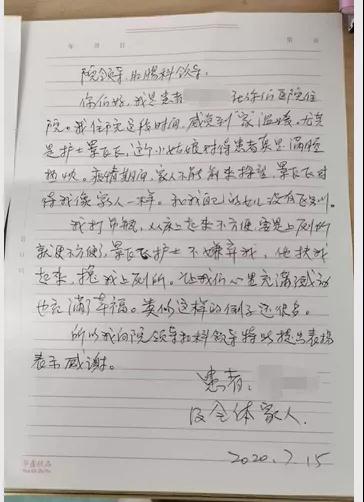 年 月 日
第 页
院领导、肛肠科领导:
你们好,我是患者 在你们医院住
院。我住院这段时间,感受到家温暖。尤其
是护士景飞飞,这个小姑娘对待患者真是满腔
热忱。疫情期间,家人不能前来探望,景飞飞对
待我像家人一样。和我自己的女儿没有区别。
我打吊瓶,从床上起来不方便,要是上厕所
就更不方便了,景飞飞护士不嫌弃我,他扶我
起来,搀我上厕所。让我们心里充满感动
也充满了幸福。类似这样的例子还很多。
所以我向院领导和科领导特此提出表扬
表示感谢。
患者:
及全体家人.
2020.7.15